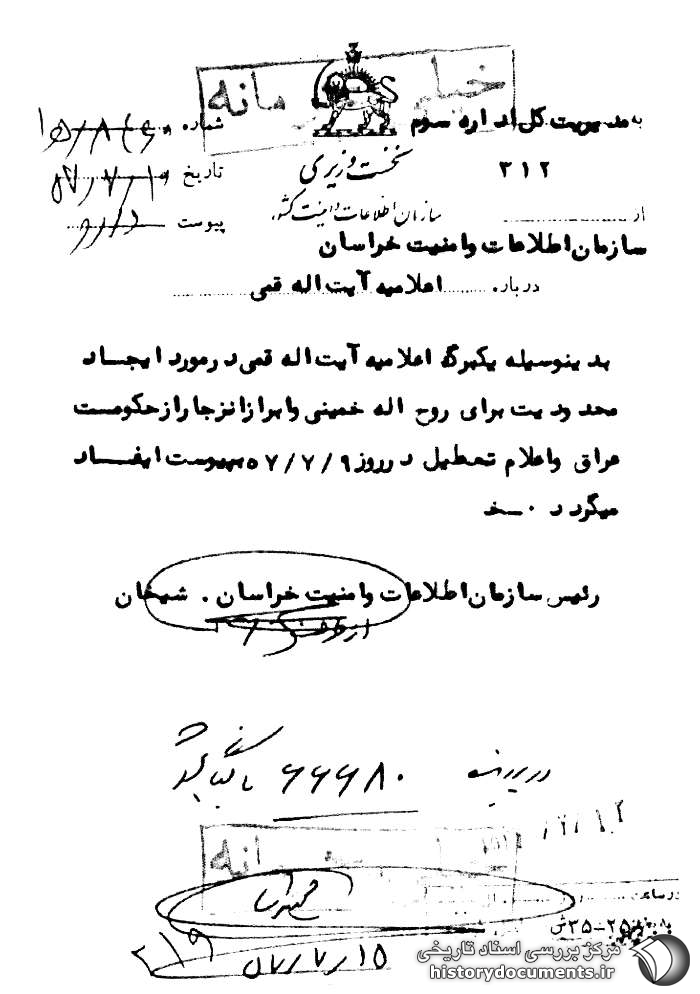 خیلی محرمانه
به مدیریت کل اداره سوم
۳۱۲
شماره
تاریخ ۵۷/۷/۱۰
پیوست دارد
نخست وزیری
سازمان اطلاعات و امنیت کشور
از
سازمان اطلاعات وامنیت خراسان
درباره اعلامیه آیت اله قمی
بدینوسیله یکبرگ اعلامیه آیت اله قمی در مورد ایجاد
محدودیت برای روح اله خمینی وابراز انزجار از حکومت
عراق واعلام تعطیل در روز ۵۷/۷/۹ بپیوست ایفاد
میگردد ۰ـخد
رئیس سازمان اطلاعات وامنیت خراسان . شیخان
از طرف
در پرونده ۶۶۶۸۰ بایگانی شود
محرمانه
۳۱۹
۱۵/۷/۵۷
۲۵-۳۵ش
مرکز بررسی اسناد تاریخی
historydocuments.ir